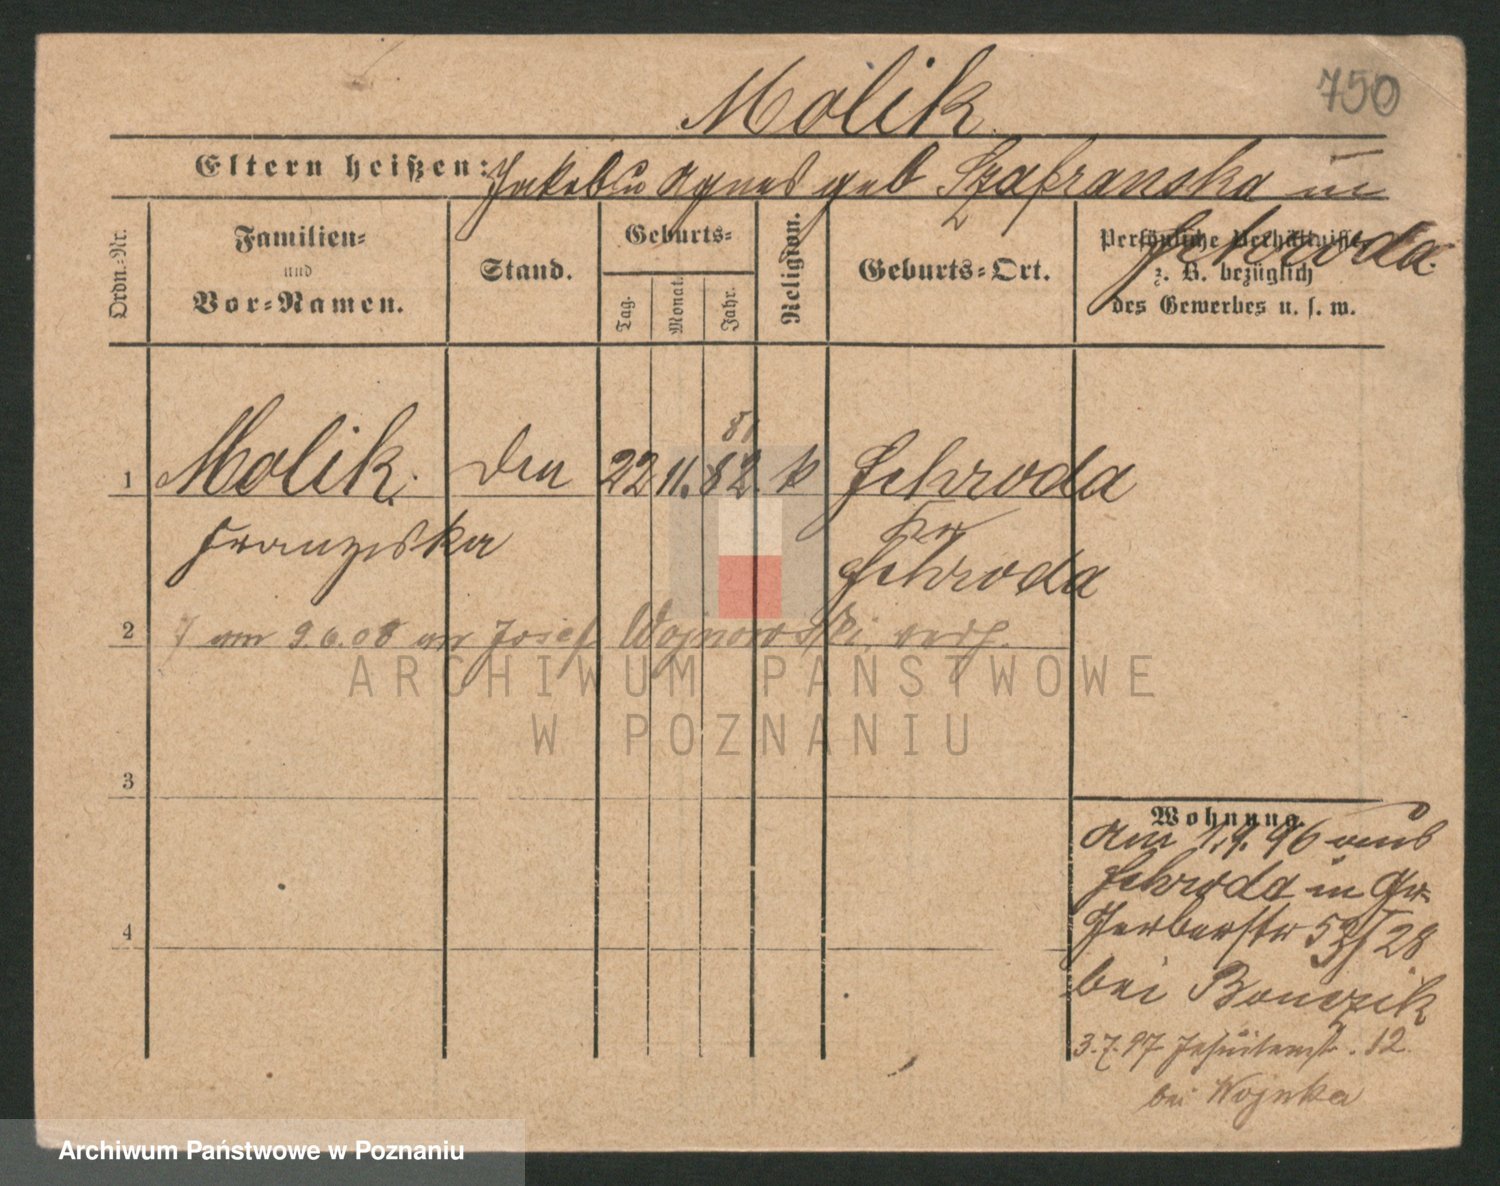 750
Molik
Eltern heißen: Jakob u Agnes geb Szafranska in
Schroda
Ordn.-Nr.
Familien-
und
Vor-Namen.
Stand.
Geburts-
Tag.
Monat.
Jahr.
Religion.
Geburts-Ort.
Persönliche Verhältnisse
z. B. bezüglich
des Gewerbes u. s. w.
81
1 Molik. 22 11. 82. k Schroda
Franziska Kr
Schroda
2 am 9.6.08 an Josef Wojnowski, verh.
ARCHIWUM PAŃSTWOWE
W POZNANIU
3
4
Wohnung.
Am 1.9.96 aus
Schroda in Gr
Gerberstr 28
bei
3.7.97 Jesuitenstr. 12
bei Wojnka
Archiwum Państwowe w Poznaniu